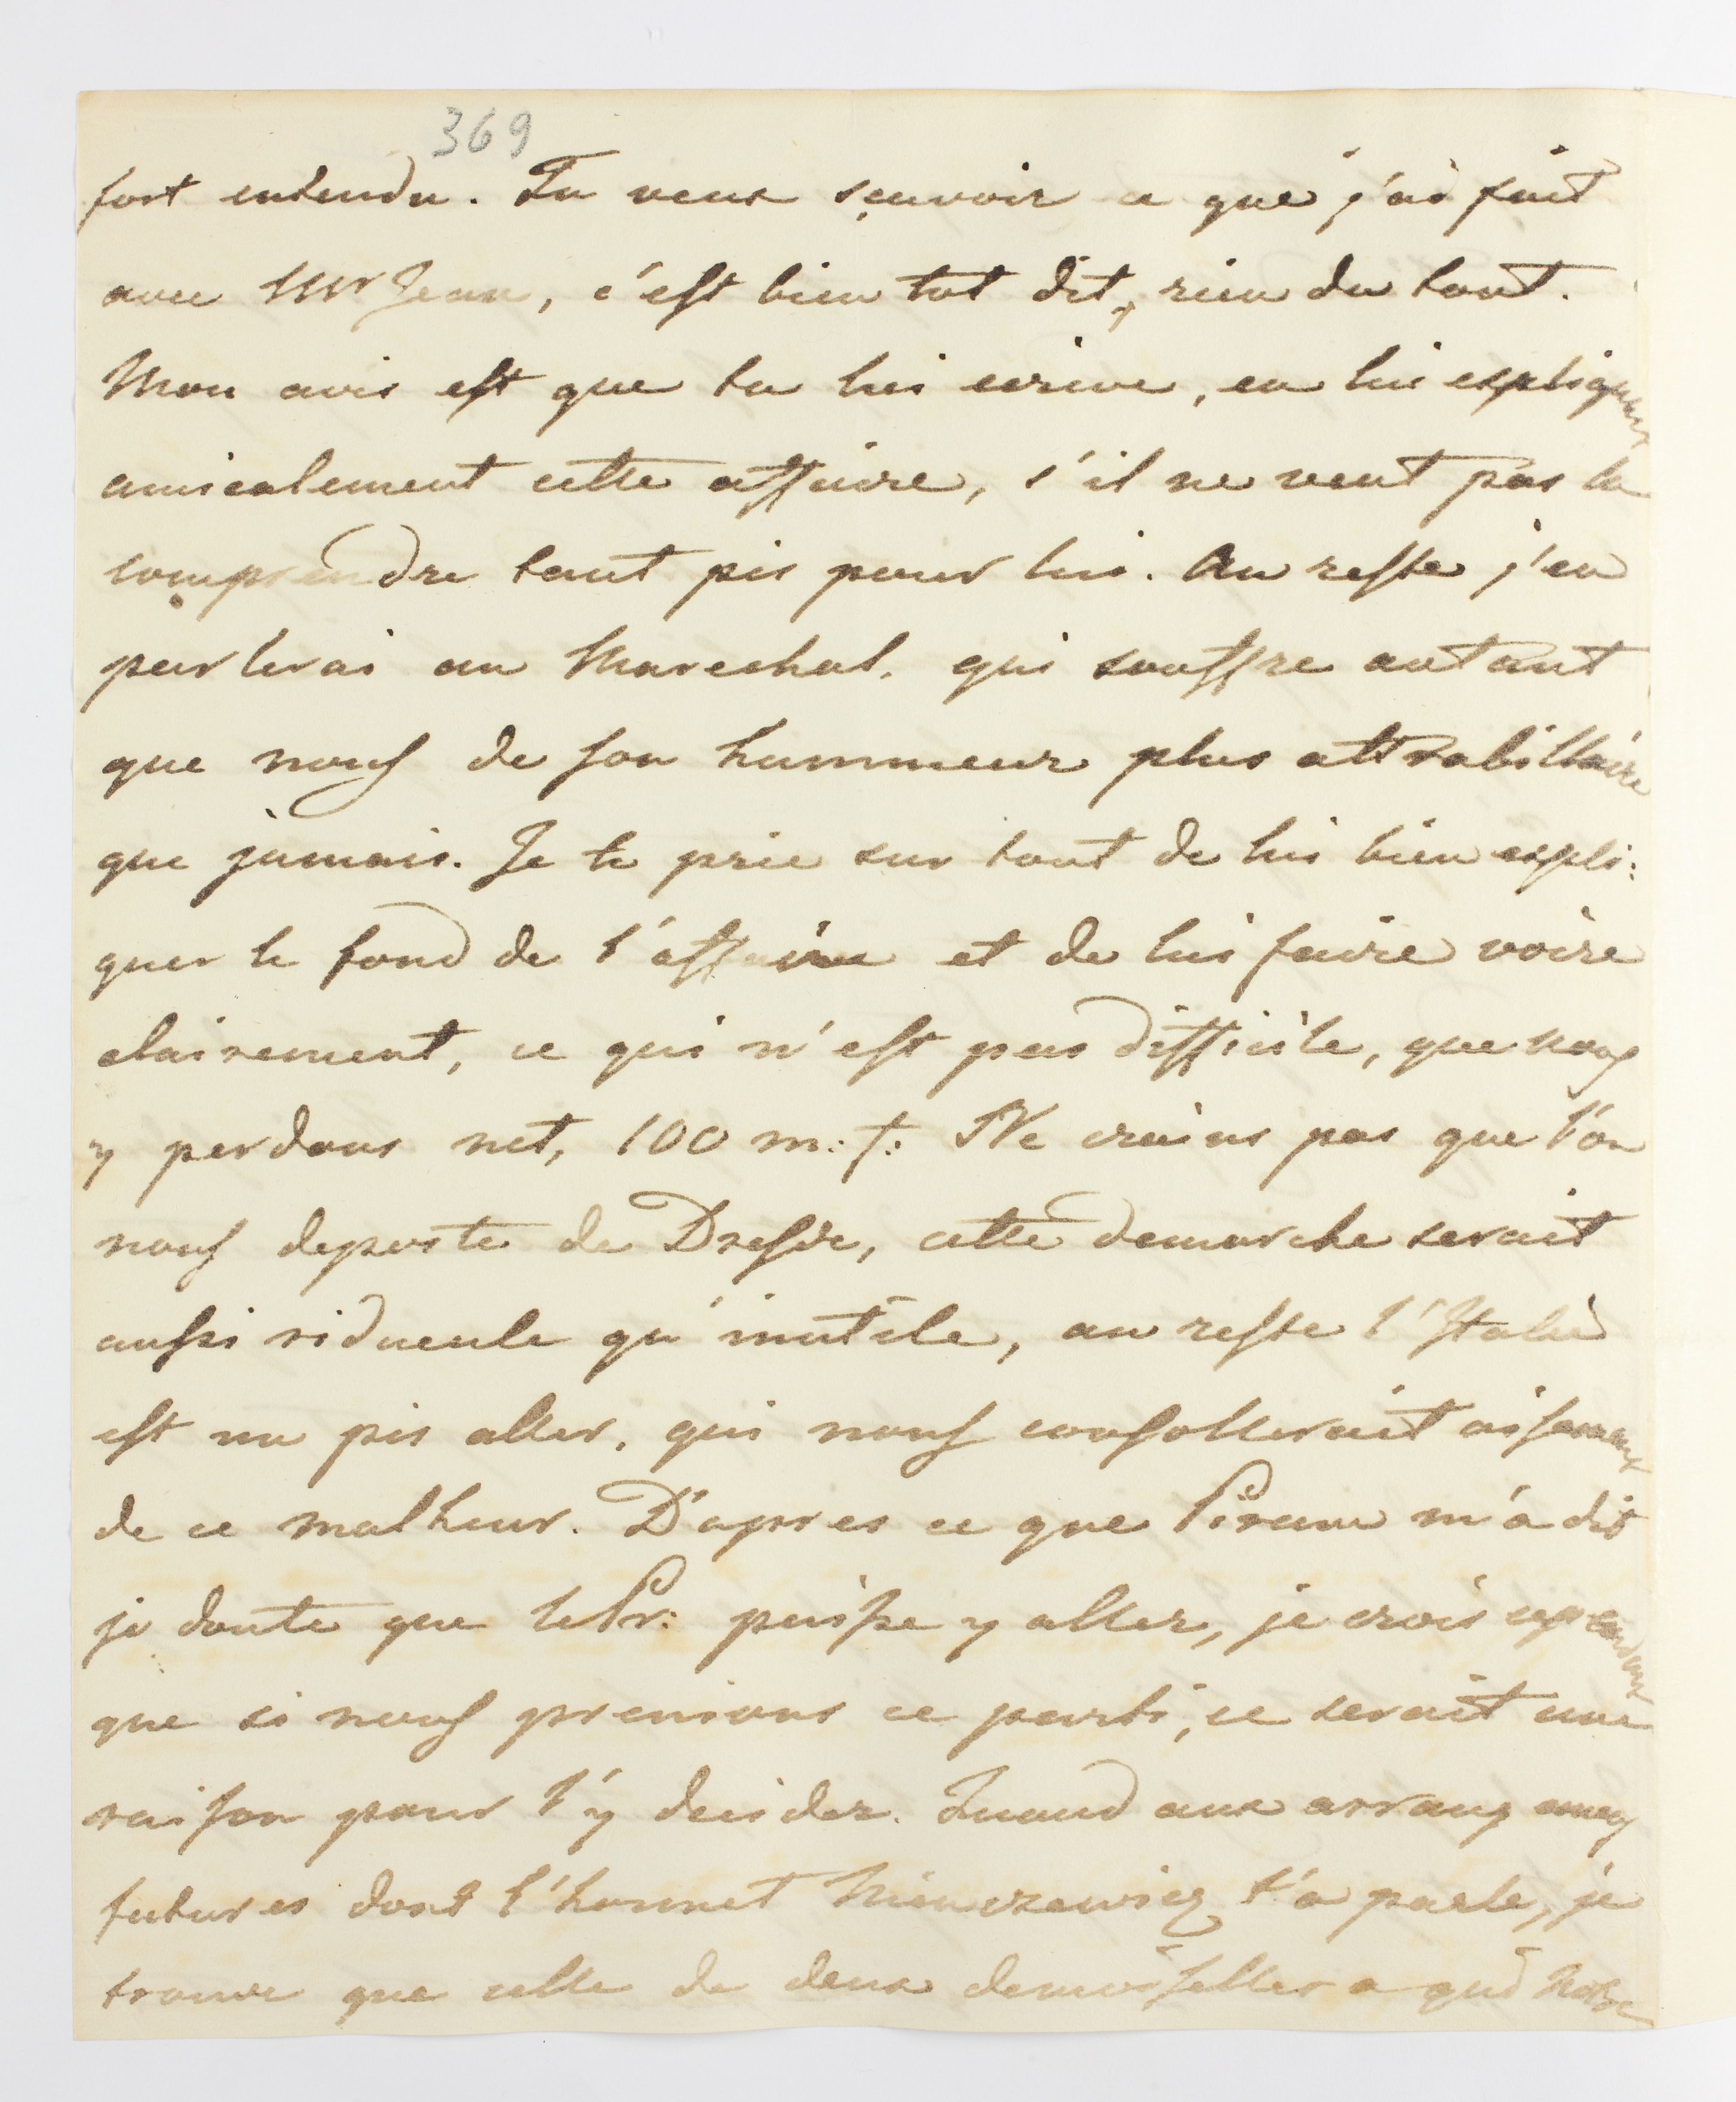 369
fort entendu. Tu veux sçavoir ce que j'ai fait
avec Mr Jean, c'est bien tot dit, rien du tout.
Mon avis est que tu lui ecrive, en lui expliquant
amicalement cette affaire, s'il ne veut pas la
comprendre tant pis pour lui. Au reste j'en
parlerai au Marechal, qui souffre autant
que nous de son hummeur plus attrabillaire
que jamais. Je te prie sur tout de lui bien expli:
quer le fond de l'affaire et de lui faire voire
clairement, ce qui n'est pas difficile, que nous
y perdons net, 100 m: f: Ne crains pas que l'on
nous deporte de Dresde, cette demarche serait
aussi riducule qu'inutile, au reste l'Italie
est un pis aller, qui nous consollerait aisement
de ce malheur. D'apres ce que m'a dit
je doute que le Pr: puisse y aller, je crois cependant
que si nous prenions ce parti, ce serait une
raison pour l'y decider. Quand aux arrangemens
futures dont l'honnet Niemczewicz t'a parle, je
trouve que celle de deux demoiselles a qui